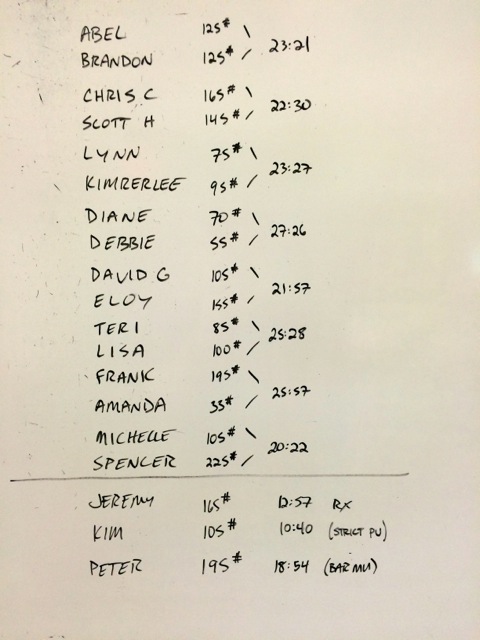 ABEL 125#
23:21
BRANDON 125#
CHRIS C 165#
22:30
SCOTT H 145#
LYNN 75#
23:27
KIMBERLEE 95#
DIANE 70#
27:26
DEBBIE 55#
DAVID G 105#
21:57
ELOY 155#
TERI 85#
25:28
LISA 100#
FRANK 195#
25:57
AMANDA 35#
MICHELLE 105#
20:22
SPENCER 225#
JEREMY 165# 12:57 RX
KIM 105# 10:40 (STRICT PU)
PETER 195# 18:54 (BAR MU)